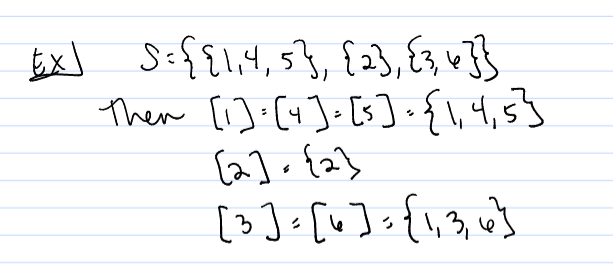 Ex] S={{1,4,5},{2},{3,6}}
Then [1]=[4]=[5]={1,4,5}
[2]={2}
[3]=[6]={1,3,6}